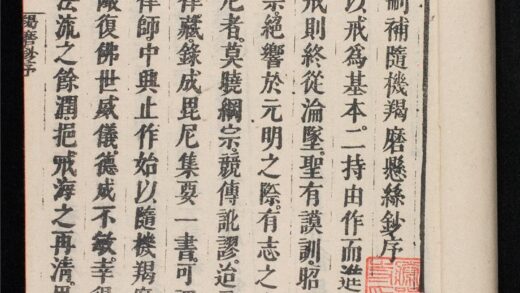 補隨機羯磨懸絲鈔序
以戒為基本二持由作而進
戒則終從淪墜聖有謨訓昭
絕響於元明之際有志之
尼者莫曉綱宗競傳訛謬迨
律藏錄成毘尼集要一書可
律師中興止作始以隨機羯
嚴復佛世威儀德威不敏幸得
法流之餘潤挹戒海之再清
羯磨鈔序